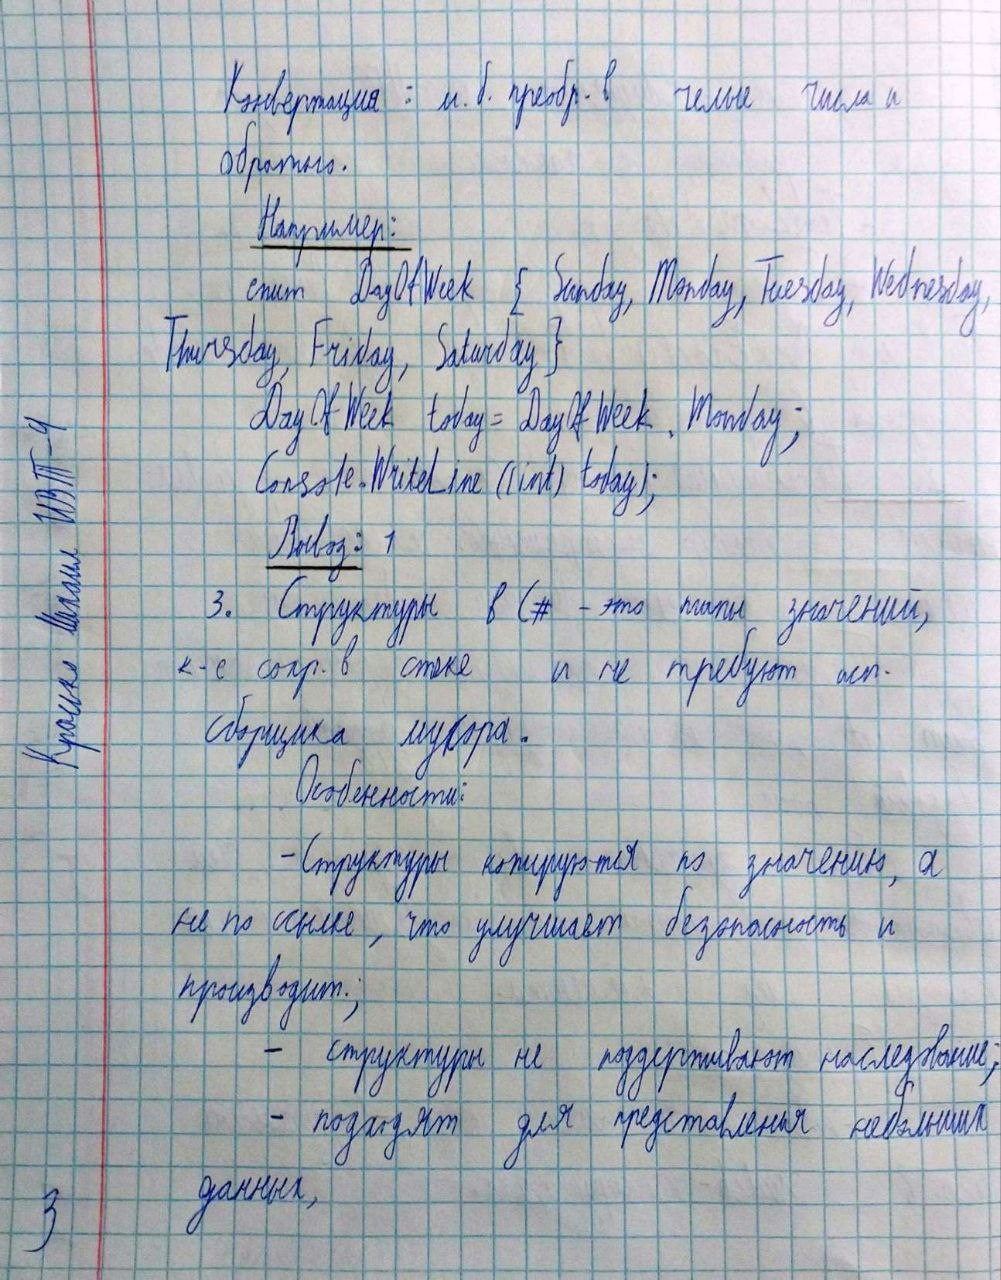 Конвертация: м.б. преобр. в целые числа и
обратно.
Например:
enum DayOfWeek { Sunday, Monday, Tuesday, Wednesday,
Thursday, Friday, Saturday }
DayOfWeek today = DayOfWeek.Monday;
Console.WriteLine((int) today);
Вывод: 1
3. Структуры в C# - это типы значений,
к-е сохр. в стеке и не требуют исп.
сборщика мусора.
Особенности:
- Структуры копируются по значению, а
не по ссылке, что улучшает безопасность и
производит.;
- структуры не поддерживают наследование;
- подходят для представления небольших
данных,
3
Михаил ИВТ-4